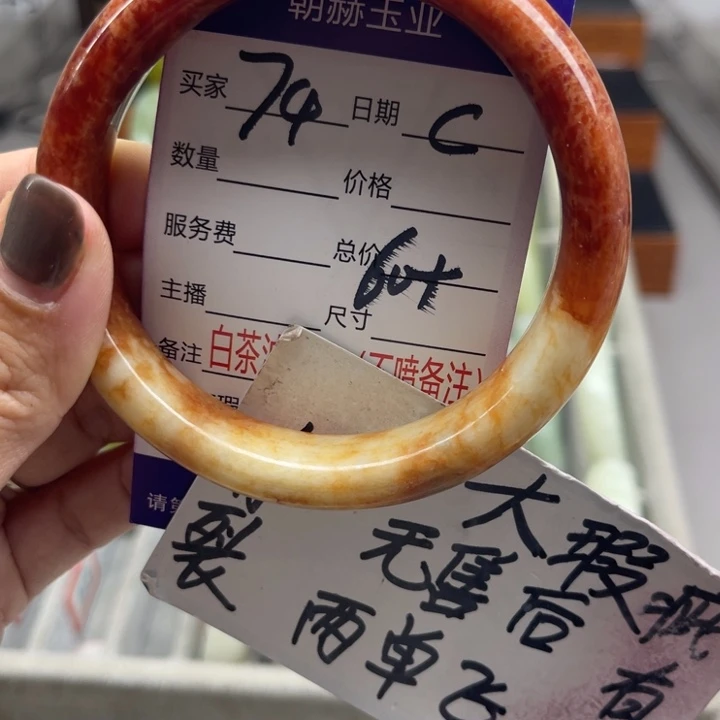 朝赫玉业
买家 74 日期 C
数量 价格
服务费 总价
主播 尺寸
备注 白茶 (不喷备注)
请
大瑕疵 有
裂 无售后
两单飞